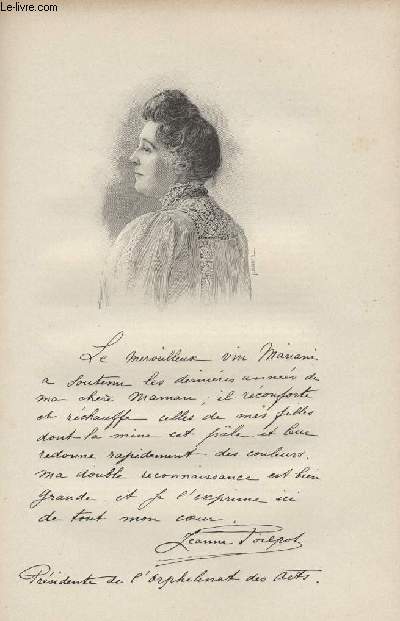 Le-livre.com
Le merveilleux vin Mariani
a soutenu les dernières années de
ma chère Maman, il réconforte
et réchauffe celles de mes filles
dont la mine est pâle et leur
redonne rapidement des couleurs.
Ma double reconnaissance est bien
grande et je l'exprime ici
de tout mon cœur.
Jeanne Poilpot
Présidente de l'Orphelinat des Arts.